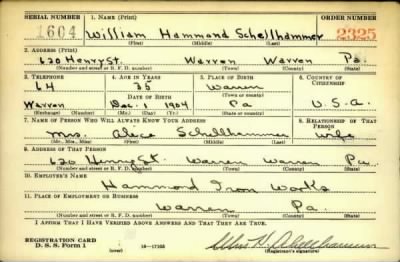 SERIAL NUMBER 1. NAME (Print) ORDER NUMBER
1604 William Hammond Schellhammer 2325
(First) (Middle) (Last)
2. ADDRESS (Print)
620 Henry St. Warren Warren Pa.
(Number and street or R. F. D. number) (Town) (County) (State)
3. TELEPHONE 4. AGE IN YEARS 5. PLACE OF BIRTH 6. COUNTRY OF CITIZENSHIP
64 35 Warren
DATE OF BIRTH (Town or county)
Warren Dec. 1 1904 Pa U.S.A.
(Exchange) (Number) (Mo.) (Day) (Yr.) (State or country)
7. NAME OF PERSON WHO WILL ALWAYS KNOW YOUR ADDRESS 8. RELATIONSHIP OF THAT PERSON
Mrs. Schellhammer wife
(Mr., Mrs., Miss) (First) (Middle) (Last)
9. ADDRESS OF THAT PERSON
620 Henry St. Warren Warren Pa.
(Number and street or R. F. D. number) (Town) (County) (State)
10. EMPLOYER'S NAME
Hammond Iron Works
11. PLACE OF EMPLOYMENT OR BUSINESS
Warren Pa.
(Number and street or R. F. D. number) (Town) (County) (State)
I AFFIRM THAT I HAVE VERIFIED ABOVE ANSWERS AND THAT THEY ARE TRUE.
REGISTRATION CARD
D. S. S. Form 1 16—17105 (Registrant's signature)